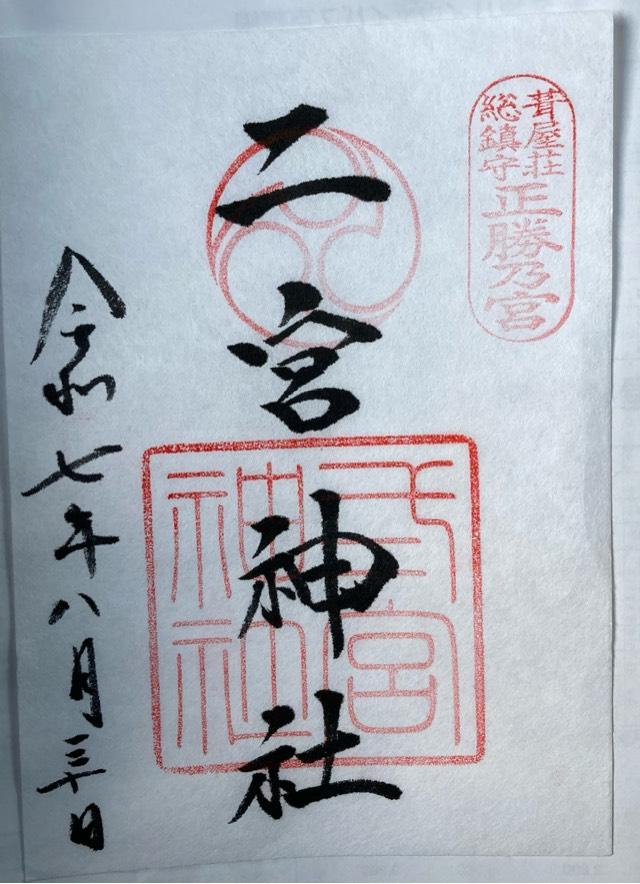 葺屋荘
総鎮守
正勝乃宮
二宮神社
弍宮
神社
令和七年八月三十日